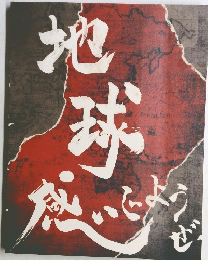 地
球
感じよう
ぜ